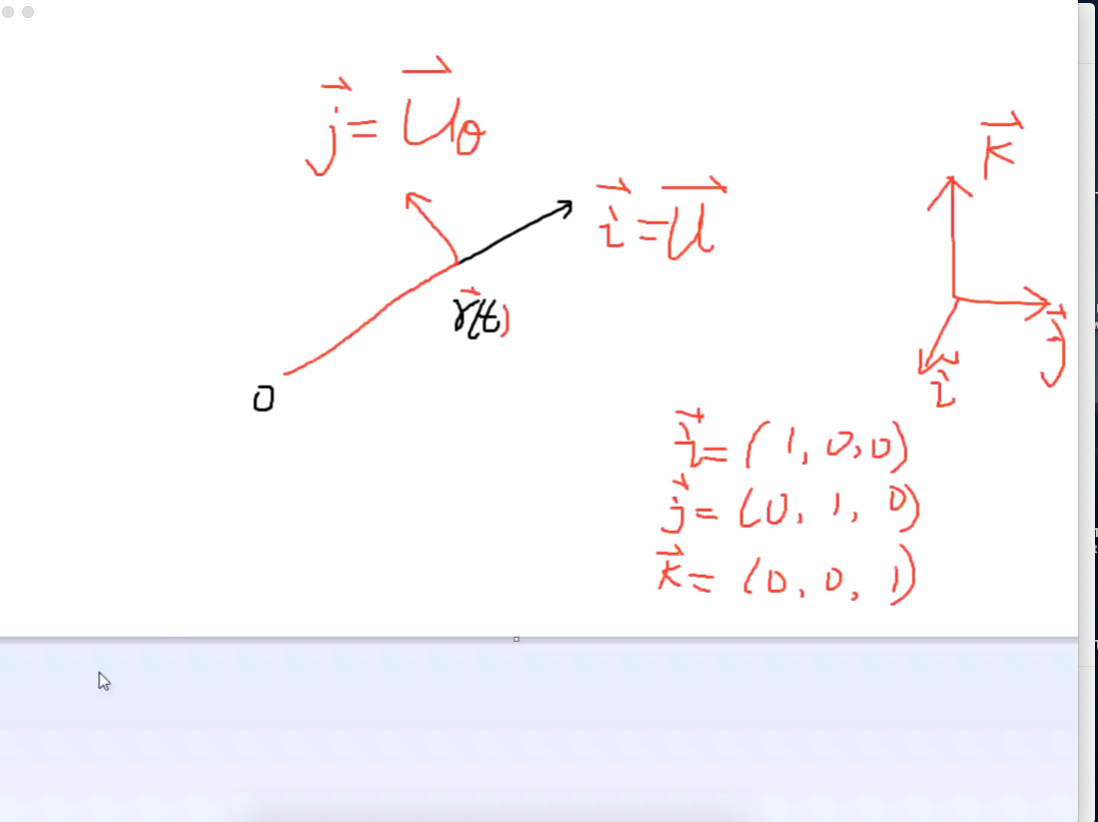 j⃗ = U⃗θ
i⃗ = U⃗
r⃗(t)
0
k⃗
j⃗
i⃗
i⃗ = (1, 0, 0)
j⃗ = (0, 1, 0)
k⃗ = (0, 0, 1)